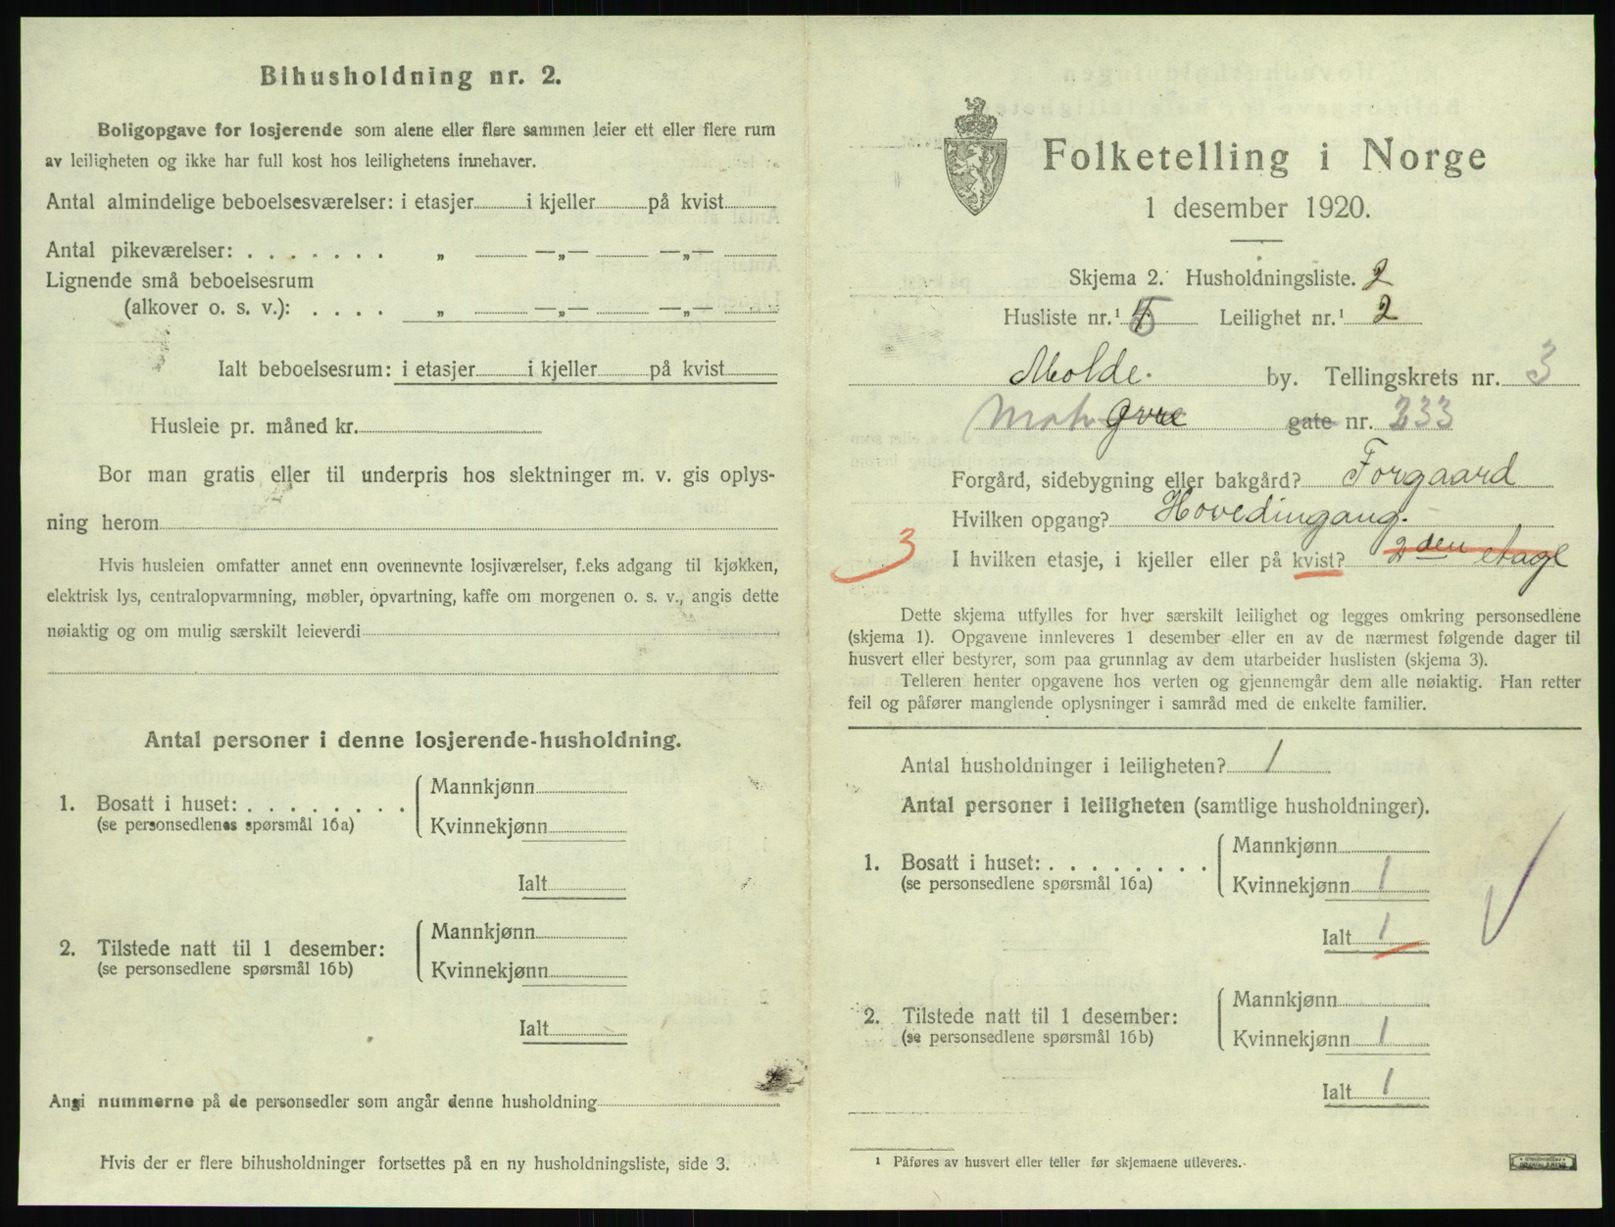 Bihusholdning nr. 2.
Boligopgave for losjerende som alene eller flere sammen leier ett eller flere rum
av leiligheten og ikke har full kost hos leilighetens innehaver.
Antal almindelige beboelsesværelser: i etasjer i kjeller på kvist
Antal pikeværelser: . . . . . . . „ —„— —„—
Lignende små beboelsesrum
(alkover o. s. v.): . . . . „ —„— —„—
Ialt beboelsesrum: i etasjer i kjeller på kvist
Husleie pr. måned kr.
Bor man gratis eller til underpris hos slektninger m. v. gis oplys-
ning herom
Hvis husleien omfatter annet enn ovennevnte losjiværelser, f.eks adgang til kjøkken,
elektrisk lys, centralopvarmning, møbler, opvartning, kaffe om morgenen o. s. v., angis dette
nøiaktig og om mulig særskilt leieverdi
Antal personer i denne losjerende-husholdning.
1. Bosatt i huset: . . . . . . . .
(se personsedlenes spørsmål 16a)
Mannkjønn
Kvinnekjønn
Ialt
2. Tilstede natt til 1 desember:
(se personsedlene spørsmål 16b)
Mannkjønn
Kvinnekjønn
Ialt
Angi nummerne på de personsedler som angår denne husholdning
Hvis der er flere bihusholdninger fortsettes på en ny husholdningsliste, side 3.
Folketelling i Norge
1 desember 1920.
Skjema 2. Husholdningsliste. 2
Husliste nr.¹ 5 Leilighet nr.¹ 2
Molde. by. Tellingskrets nr. 3
Øvre gate nr. 333
Forgård, sidebygning eller bakgård? Forgaard
Hvilken opgang? Hovedingang.
3 I hvilken etasje, i kjeller eller på kvist? 2den etage
Dette skjema utfylles for hver særskilt leilighet og legges omkring personsedlene
(skjema 1). Opgavene innleveres 1 desember eller en av de nærmest følgende dager til
husvert eller bestyrer, som paa grunnlag av dem utarbeider huslisten (skjema 3).
Telleren henter opgavene hos verten og gjennemgår dem alle nøiaktig. Han retter
feil og påfører manglende oplysninger i samråd med de enkelte familier.
Antal husholdninger i leiligheten? 1
Antal personer i leiligheten (samtlige husholdninger).
1. Bosatt i huset: . . . . . . . .
(se personsedlene spørsmål 16a)
Mannkjønn
Kvinnekjønn 1
Ialt 1
2. Tilstede natt til 1 desember:
(se personsedlene spørsmål 16b)
Mannkjønn
Kvinnekjønn 1
Ialt 1
¹ Påføres av husvert eller teller før skjemaene utleveres.